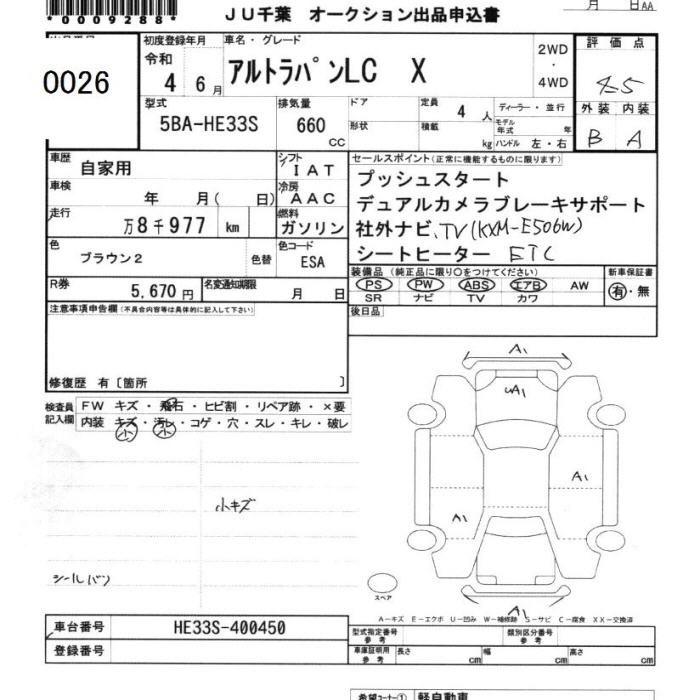 *0009288*
JU千葉 オークション出品申込書
月 日AA
0026
初度登録年月
令和
4 6月
車名・グレード
アルトラパンLC X
2WD
・
4WD
評価点
4.5
外装 内装
B A
型式
5BA-HE33S
排気量
660
CC
ドア
形状
定員
4人
積載
kg
ディーラー・並行
モデル年式 年
ハンドル 左・右
車歴
自家用
シフト
IAT
車検
年 月( 日)
冷房
AAC
走行
万8千977 km
燃料
ガソリン
色
ブラウン2
色替
色コード
ESA
R券
5,670円
名変通知期限
月 日
セールスポイント(正常に機能するものに限ります)
プッシュスタート
デュアルカメラブレーキサポート
社外ナビ、TV(KXM-E506W)
シートヒーター ETC
装備品(純正品に限り○をつけてください)
PS PW ABS エアB AW
SR ナビ TV カワ
新車保証書
有・無
後日品
注意事項申告欄(不具合内容等は具体的に記入して下さい)
修復歴 有〔箇所 〕
検査員記入欄
FW キズ・飛石・ヒビ割・リペア跡・×要
内装 キズ・汚レ・コゲ・穴・スレ・キレ・破レ
小 小
小キズ
シールバン
A1
A1
A1
A1
A1
スペア
A-キズ E-エクボ U-凹み W-補修跡 S-サビ C-腐食 XX-交換済
車台番号
HE33S-400450
登録番号
型式指定番号
参考
類別区分番号
参考
車庫証明用
参考
長さ cm
幅 cm
高さ cm
希望コーナー① 軽自動車